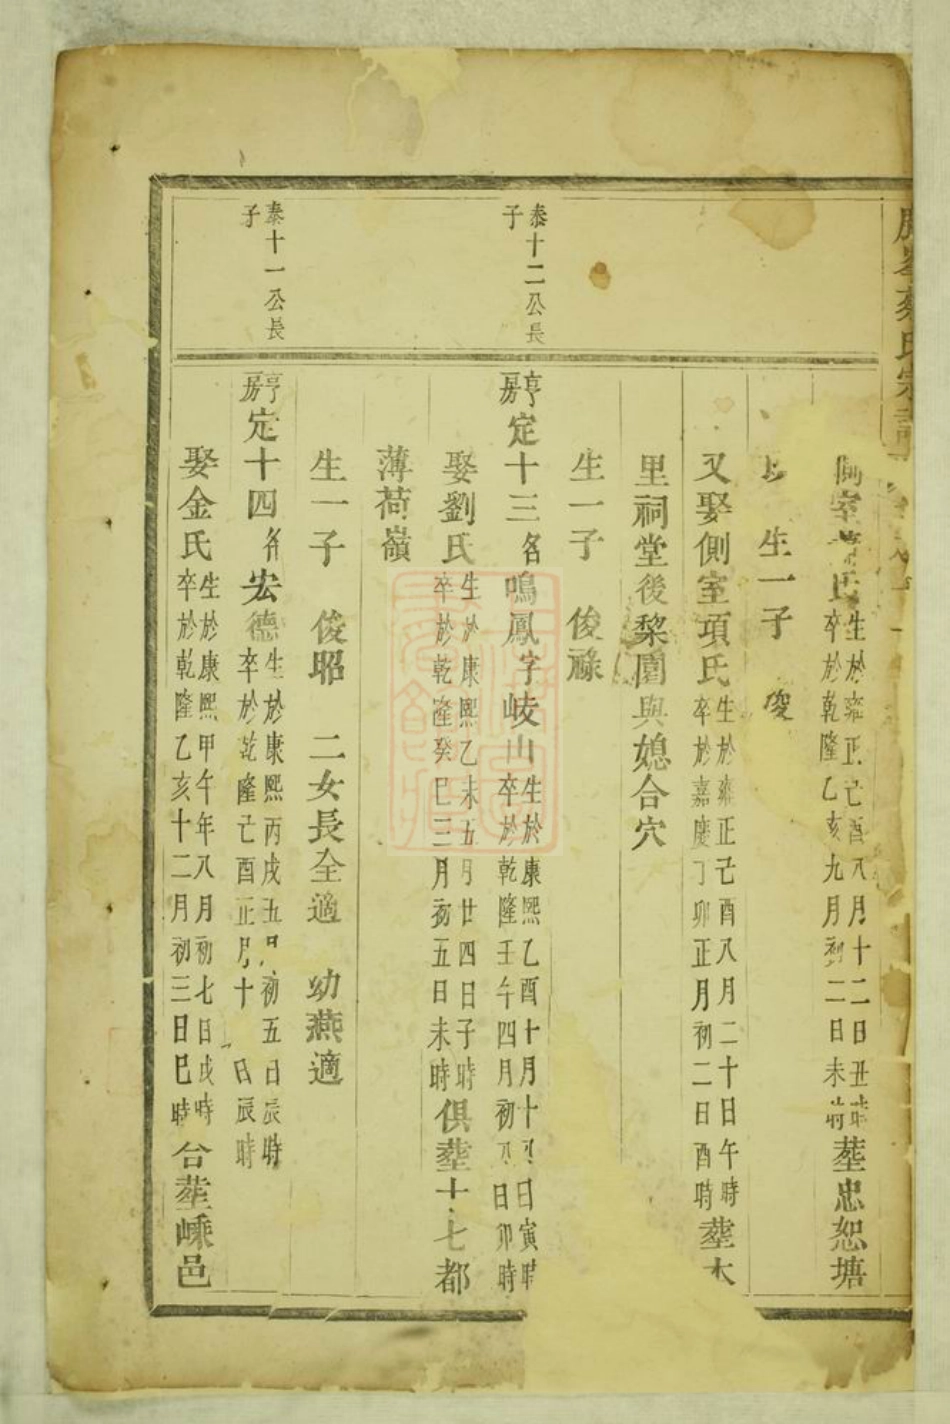 氏宗譜
側室 氏生於雍正己酉八月十二日丑時卒於乾隆乙亥九月初二日未時葬忠恕塘
生一子 俊
又娶側室項氏生於雍正己酉八月二十日午時卒於嘉慶丁卯正月初二日酉時葬本
里祠堂後棃園與媳合穴
生一子 俊祿
泰十二公長子
亨房定十三名鳴鳳字岐山生於康熙乙酉十月十 日寅時卒於乾隆壬午四月初 日卯時
娶劉氏生於康熙乙未五月廿四日子時卒於乾隆癸巳三月初五日未時俱葬十七都
薄荷嶺
生一子 俊昭 二女長全適 幼燕適
泰十一公長子
亨房定十四名宏德生於康熙丙戌五月初五日辰時卒於乾隆己酉正月十 日辰時
娶金氏生於康熙甲午年八月初七日戌時卒於乾隆乙亥十二月初三日巳時合葬嵊邑